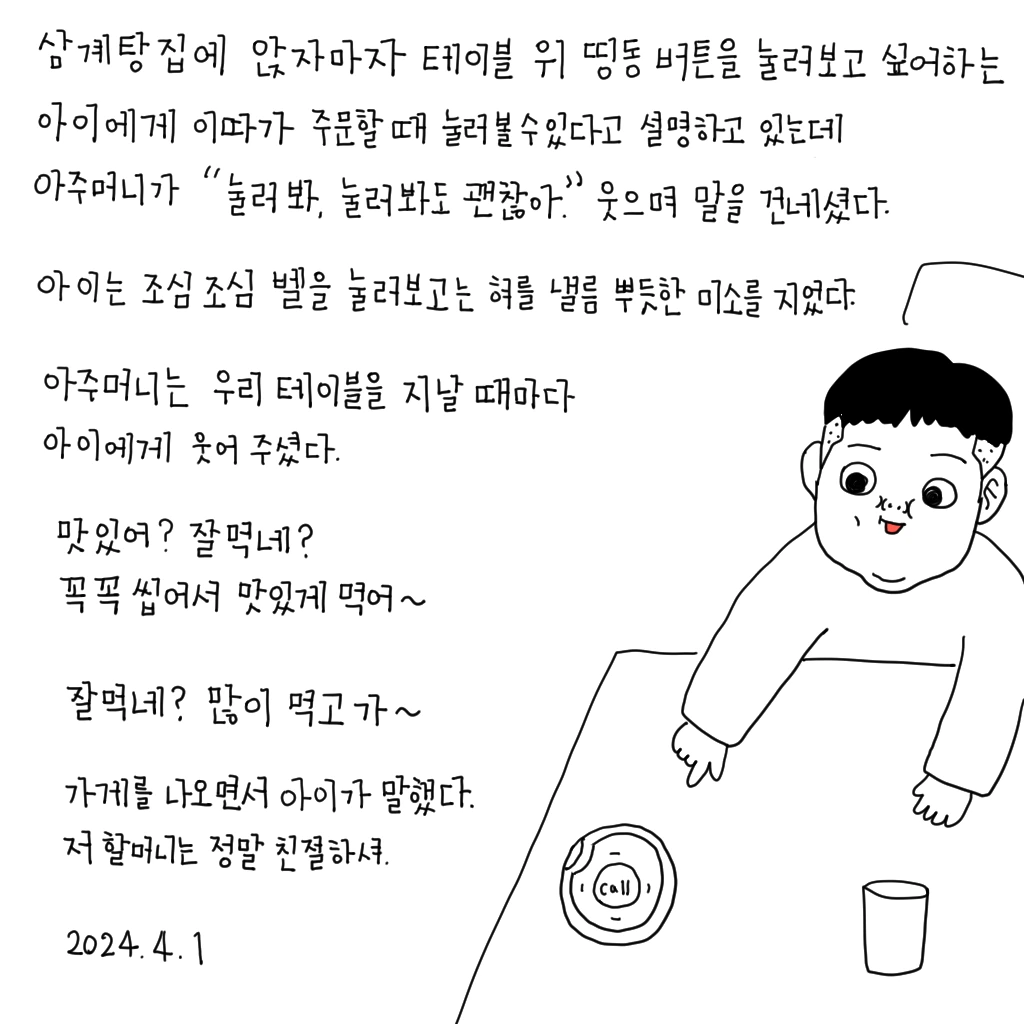 삼계탕집에 앉자마자 테이블 위 띵동 버튼을 눌러보고 싶어하는
아이에게 이따가 주문할 때 눌러볼 수 있다고 설명하고 있는데
아주머니가 “눌러 봐, 눌러봐도 괜찮아.” 웃으며 말을 건네셨다.
아이는 조심 조심 벨을 눌러보고는 혀를 낼름 뿌듯한 미소를 지었다.
아주머니는 우리 테이블을 지날 때마다
아이에게 웃어 주셨다.
맛있어? 잘먹네?
꼭꼭 씹어서 맛있게 먹어~
잘먹네? 많이 먹고 가~
가게를 나오면서 아이가 말했다.
저 할머니는 정말 친절하셔.
2024. 4. 1
call